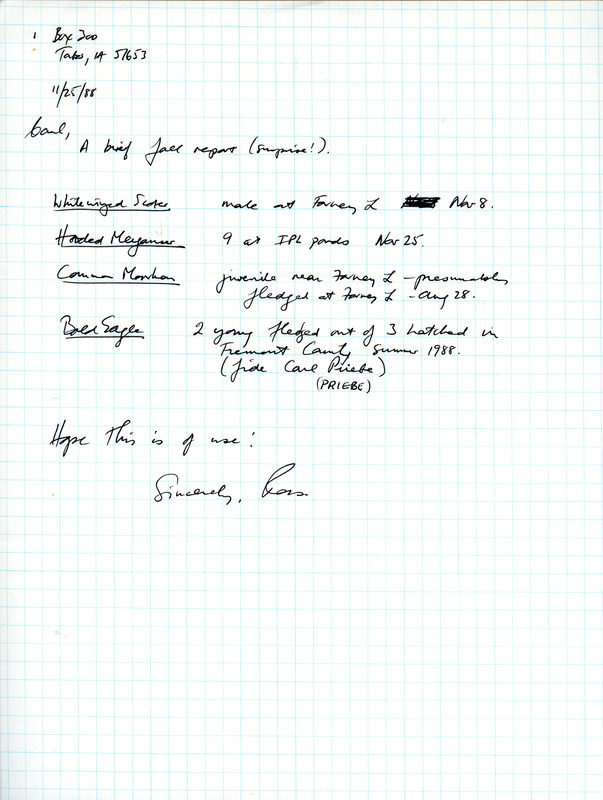 Box 200
Tabor, IA 51653
11/25/88
Carl,
A brief fall report (surprise!).
White winged Scoter male at Forney L Nov 8.
Hooded Merganser 9 at IPL ponds Nov 25.
Common Moorhen juvenile near Forney L - presumably
fledged at Forney L - Aug 28.
Bald Eagle 2 young fledged out of 3 hatched in
Fremont County summer 1988.
(fide Carl Priebe)
(PRIEBE)
Hope this is of use!
Sincerely, Ross